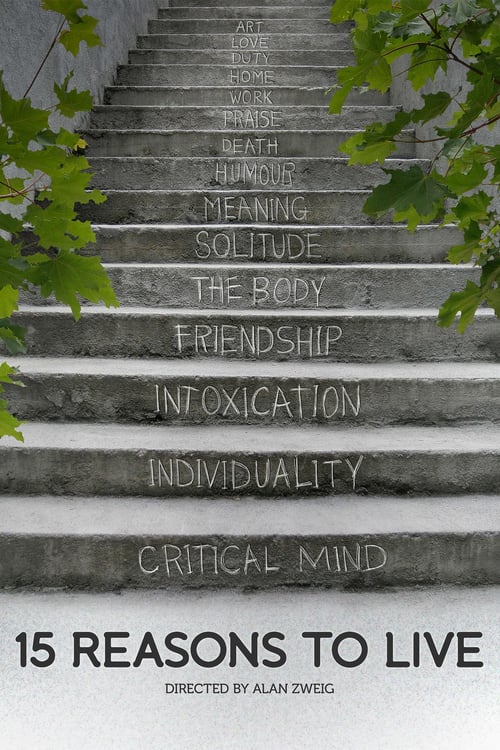 ART
LOVE
DUTY
HOME
WORK
PRAISE
DEATH
HUMOUR
MEANING
SOLITUDE
THE BODY
FRIENDSHIP
INTOXICATION
INDIVIDUALITY
CRITICAL MIND
15 REASONS TO LIVE
DIRECTED BY ALAN ZWEIG